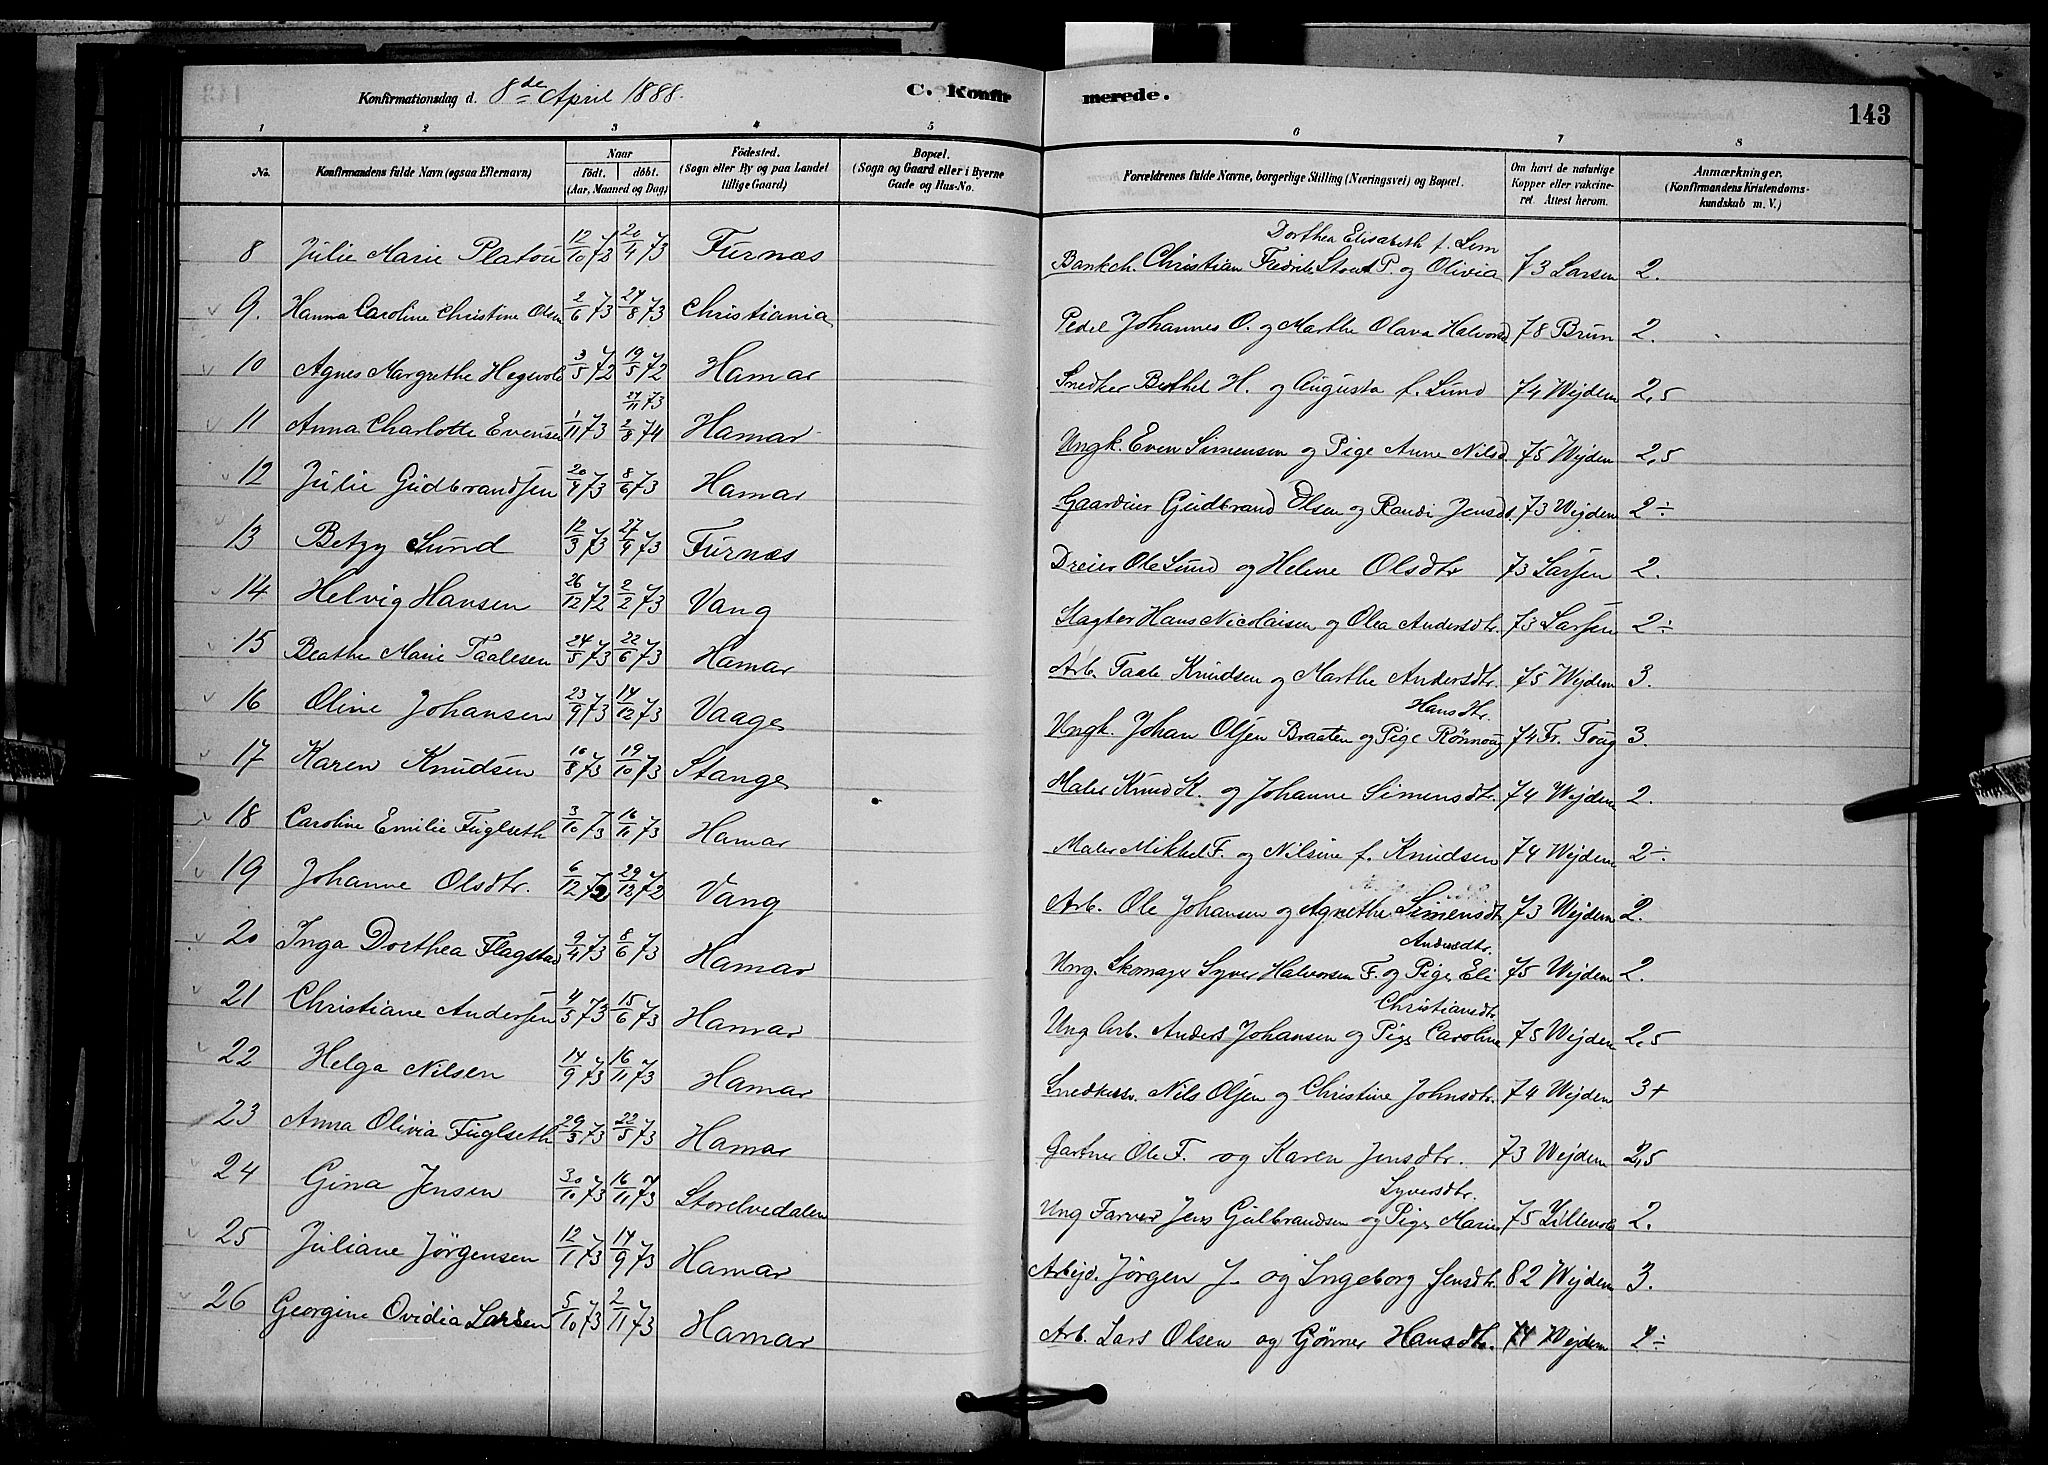 Konfirmationsdag d. 8de April 1888. C. Konfirmerede. 143
1 2 3 4 5 6 7 8
No. Konfirmandens fulde Navn (ogsaa Efternavn) Naar födt. döbt. (Aar, Maaned og Dag) Födested. (Sogn eller By og paa Landet tillige Gaard) Bopæl. (Sogn og Gaard eller i Byerne Gade og Hus-No. Forældrenes fulde Navne, borgerlige Stilling (Næringsvei) og Bopæl. Om havt de naturlige Kopper eller vaccineret. Attest herom. Anmærkninger. (Konfirmandens Kristendomskundskab m. V.)
Dorthea Elisabeth f. Lem
8 Julie Marie Platou 12/10 72 20/4 73 Furnæs Bankch. Christian Fredrik Stoud P. og Olivia 73 Larsen 2.
9. Hanna Caroline Christine Olsen 2/6 73 24/8 73 Christiania Pedel Johannes O. og Marthe Olava Halvorsd 78 Brun 2.
10 Agnes Margrethe Hegevold 3/5 72 19/5 72 Hamar Snedker Berthel H. og Augusta f. Lund 74 Wejdem 2,5
27/11 73
11 Anna Charlotte Evensen 1/11 73 2/8 74 Hamar Ungk. Even Simensen og Pige Anne Nilsd. 75 Wejden 2,5
12 Julie Gudbrandsen 20/4 73 8/6 73 Hamar Gaardeier Gudbrand Olsen og Randi Jensdt. 73 Wejdem 2÷
13 Betzy Lund 12/3 73 27/4 73 Furnæs Dreier Ole Lund og Helene Olsdtr 73 Larsen 2.
14 Helvig Hansen 26/12 72 2/2 73 Vang Slagter Hans Nicolaisen og Olea Andersdtr. 73 Larsen 2÷
15 Beathe Marie Taalesen 24/5 73 22/6 73 Hamar Arb. Taale Knudsen og Marthe Andersdtr. 75 Wejdem 3.
Hansdtr.
16 Oline Johansen 23/9 73 14/12 73 Vaage Ungk. Johan Olsen Braaten og Pige Rönnoug 74 Fr. Toug 3.
17 Karen Knudsen 16/8 73 19/10 73 Stange Maler Knud K. og Johanne Simensdtr. 74 Wejdem 2.
18 Caroline Emilie Fuglseth 3/10 73 16/11 73 Hamar Maler Mikkel F. og Nilsine f. Knudsen 74 Wejdem 2÷.
19 Johanne Olsdtr. 6/12 72 29/12 72 Vang Arb. Ole Johansen og Agnethe Simensdt. 73 Wejdem 2.
Andersdtr.
20 Inga Dorthea Flagstad 9/4 73 8/6 73 Hamar Ung. Skomager Syver Halvorsen F. og Pige Eli 75 Wejdem 2.
Christiansdtr.
21 Christiane Andersen 4/5 73 15/6 73 Hamar Ung Arb. Anders Johansen og Pige Caroline 75 Wejdem 2,5
22 Helga Nilsen 14/9 73 16/11 73 Hamar Snedkersv. Nils Olsen og Christine Johnsdtr. 74 Wejdem 3+
23 Anna Olivia Fuglseth 29/3 73 22/5 73 Hamar Gartner Ole F. og Karen Jensdtr. 73 Wejdem 2,5
Syversdtr.
24 Gina Jensen 30/10 73 16/11 73 Storelvedalen Ung Farver Jens Gulbrandsen og Pige Marie 75 Lillevold 2.
25 Juliane Jörgensen 12/1 73 14/9 73 Hamar Arbejd. Jörgen J. og Ingeborg Jensdtr. 82 Wejdem 3.
26 Georgine Ovidia Larsen 5/10 73 2/11 73 Hamar Arb. Lars Olsen og Görner Hansdtr. 74 Wejdem 2÷